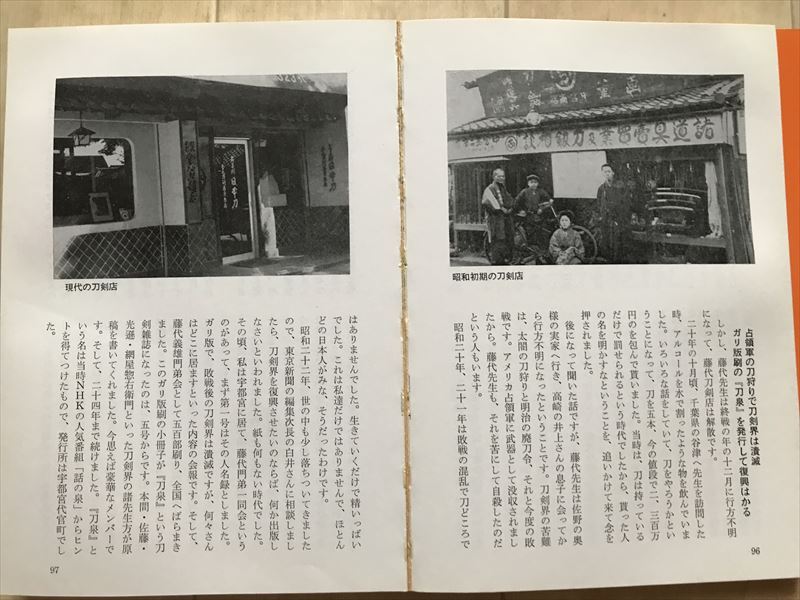 諸道具壱習業及刀銀相談
昭和初期の刀剣店
占領軍の刀狩りで刀剣界は潰滅
ガリ版刷の『刀泉』を発行して復興はかる
しかし、藤代先生は終戦の年の十二月に行方不明
になって、藤代刀剣店は解散です。
二十年の十月頃、千葉県の谷津へ先生を訪問した
時、アルコールを水で割ったような物を飲んでいま
した。いろいろな話をしていて、刀をやろうかとい
うことになって、刀を五本、今の値段で二、三百万
円のを包んで貰いました。当時は、刀は持っている
だけで罰せられるという時代でしたから、貰った人
の名を明かすなということを、追いかけて来て念を
押されました。
後になって聞いた話ですが、藤代先生は佐野の奥
様の実家へ行き、高崎の井上さんの息子に会ってか
ら行方不明になったということです。刀剣界の苦難
は、太閤の刀狩りと明治の廃刀令、それと今度の敗
戦です。アメリカ占領軍に武器として没収されまし
たから。藤代先生も、それを苦にして自殺したのだ
という人もいます。
昭和二十年、二十一年は敗戦の混乱で刀どころで
96
日本刀
現代の刀剣店
はありませんでした。生きていくだけで精いっぱい
でした。これは私達だけではありませんで、ほとん
どの日本人がみな、そうだったわけです。
昭和二十二年、世の中も少し落ちついてきました
ので、東京新聞の編集次長の白井さんに相談しまし
たら、刀剣界を復興させたいのならば、何か出版し
なさいといわれました。紙も何もない時代でした。
その頃、私は宇都宮に居て、藤代門弟一同会という
のがあって、まず第一号はその人名録としました。
ガリ版で、敗戦後の刀剣界は潰滅ですが、何々さん
はどこに居ますといった内容の会報です。そして、
藤代義雄門弟会として五百部刷り、全国へばらまき
ました。このガリ版の小冊子が『刀泉』という刀
剣雑誌になったのは、五号からです。本間・佐藤・
光遜・網屋惣右衛門といった刀剣界の諸先生方が原
稿を書いてくれました。今思えば豪華なメンバーで
す。そして、二十四年まで続けました。『刀泉』と
いう名は当時NHKの人気番組「話の泉」からヒン
トを得てつけたもので、発行所は宇都宮代官町でし
た。
97